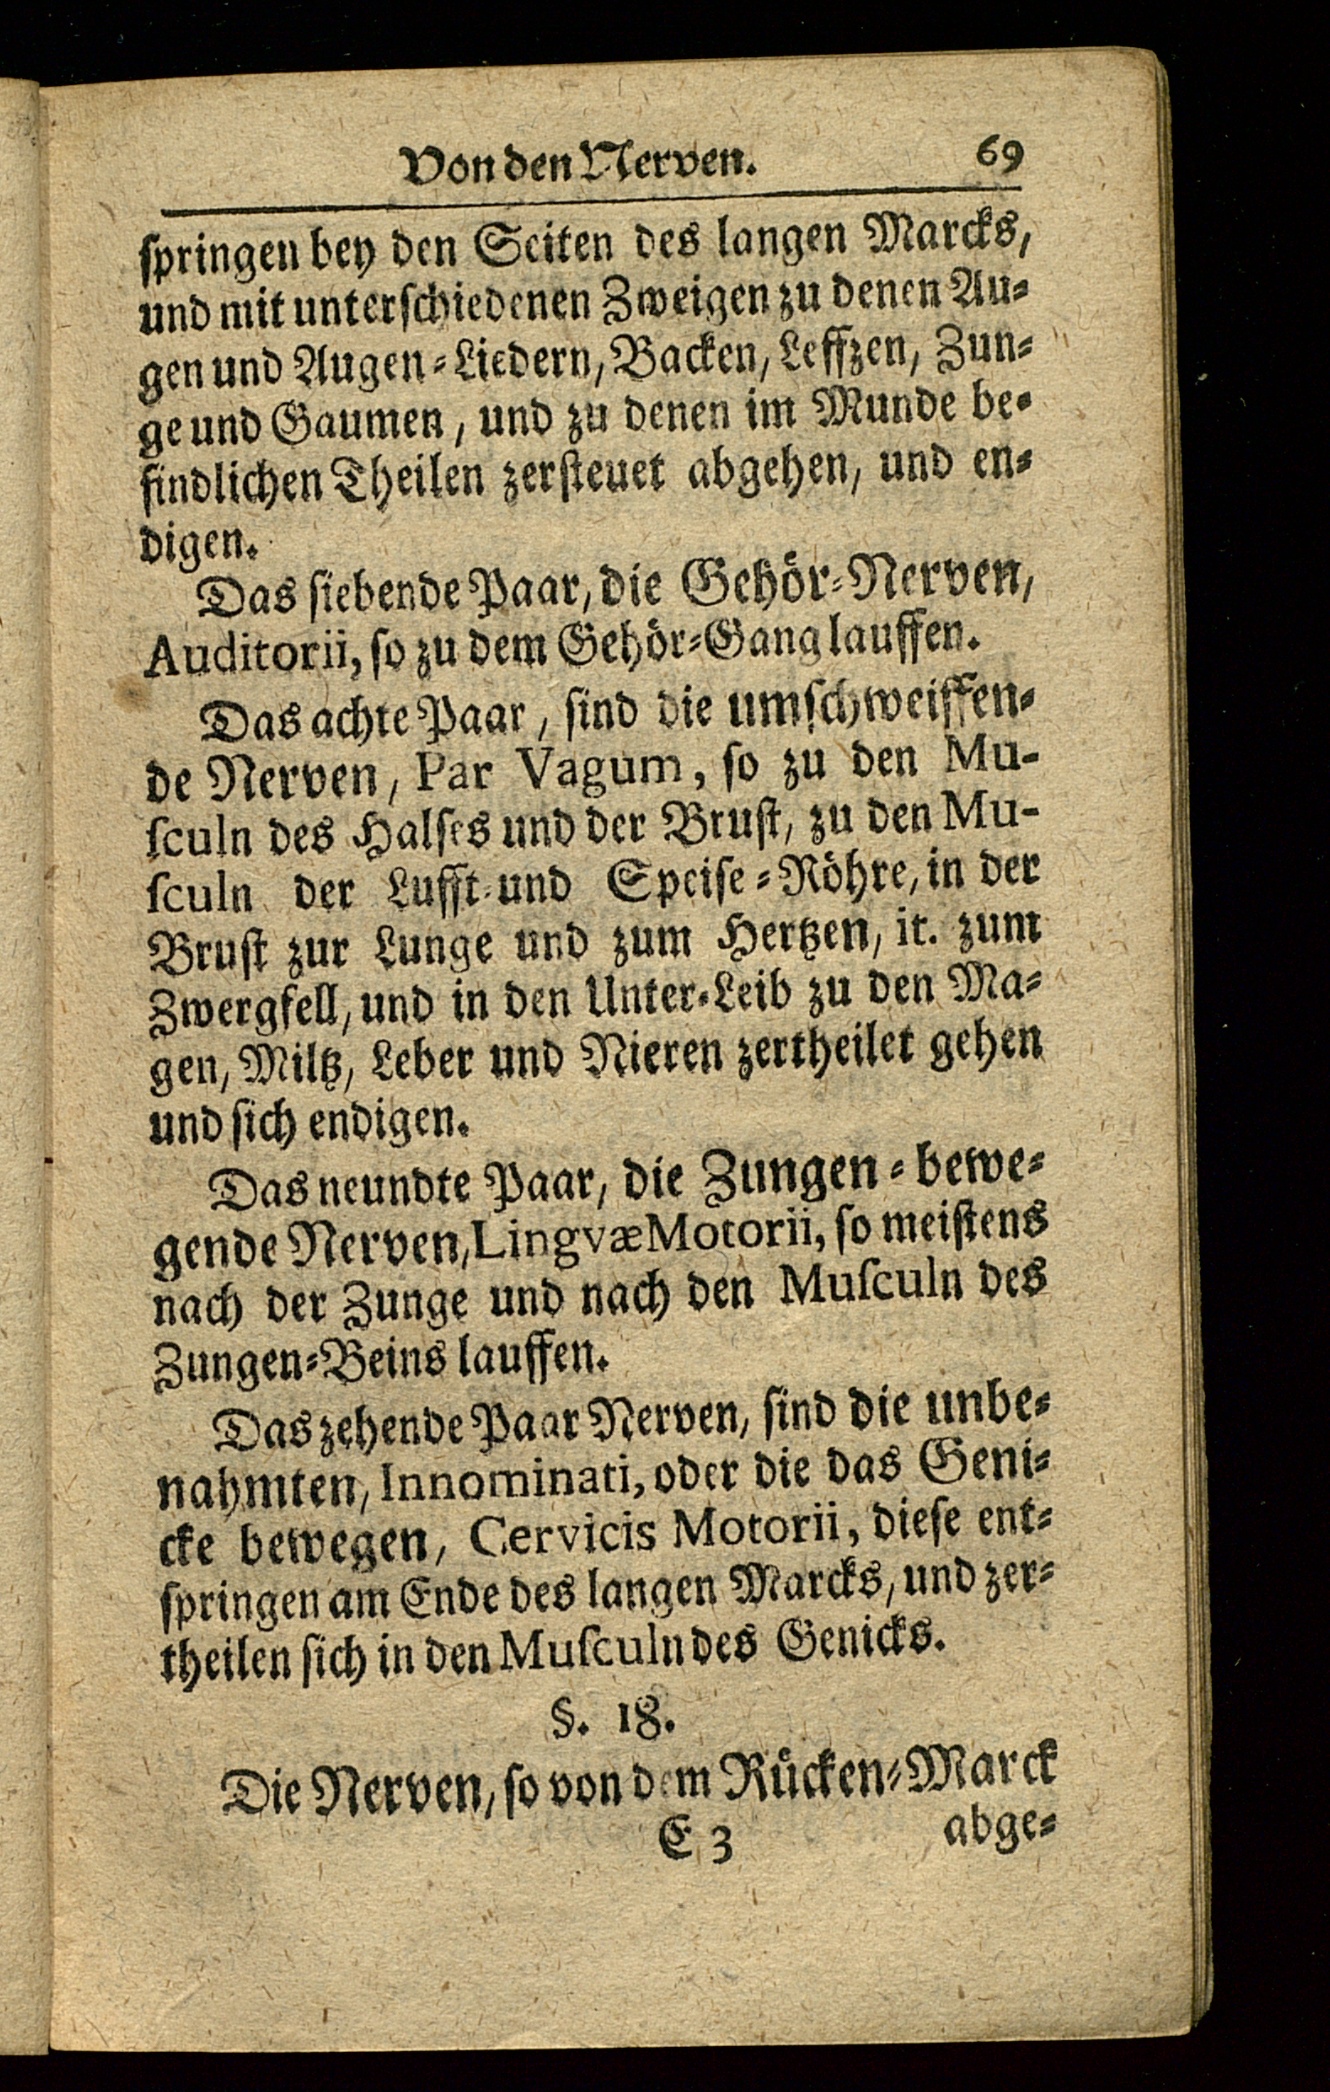 Von den Nerven. 69
springen bey den Seiten des langen Marcks,
und mit unterschiedenen Zweigen zu denen Au-
gen und Augen-Liedern, Backen, Leffzen, Zun-
ge und Gaumen, und zu denen im Munde be-
findlichen Theilen zersteuet abgehen, und en-
digen.
Das siebende Paar, die Gehör-Nerven,
Auditorii, so zu dem Gehör-Gang lauffen.
Das achte Paar, sind die umschweiffen-
de Nerven, Par Vagum, so zu den Mu-
sculn des Halses und der Brust, zu den Mu-
sculn der Lufft- und Speise-Röhre, in der
Brust zur Lunge und zum Hertzen, it. zum
Zwergfell, und in den Unter-Leib zu den Ma-
gen, Miltz, Leber und Nieren zertheilet gehen
und sich endigen.
Das neundte Paar, die Zungen-bewe-
gende Nerven, Lingvæ Motorii, so meistens
nach der Zunge und nach den Musculn des
Zungen-Beins lauffen.
Das zehende Paar Nerven, sind die unbe-
nahmten, Innominati, oder die das Geni-
cke bewegen, Cervicis Motorii, diese ent-
springen am Ende des langen Marcks, und zer-
theilen sich in den Musculn des Genicks.
§. 18.
Die Nerven, so von dem Rücken-Marck
E 3 abge-